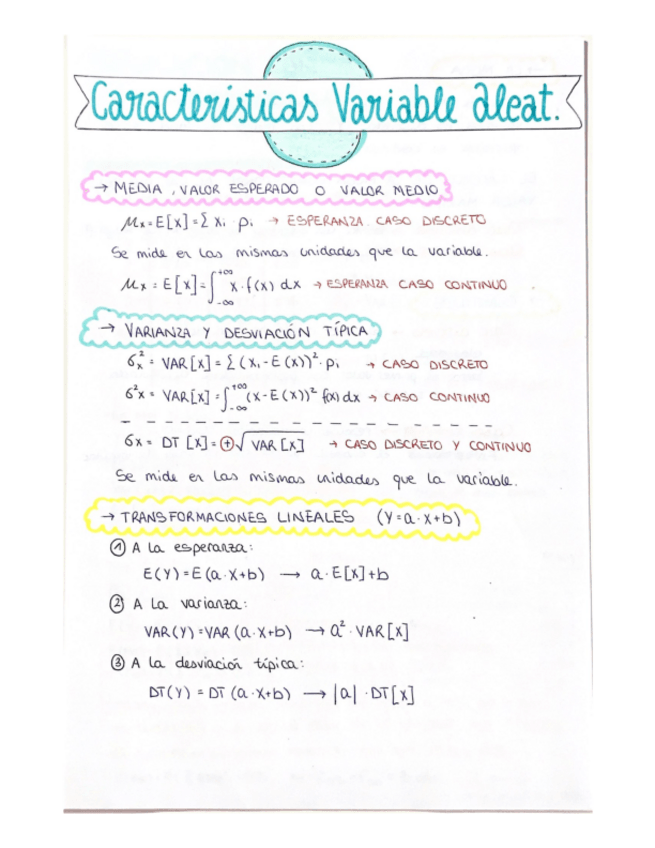 Características Variable Aleat.
→ MEDIA, VALOR ESPERADO O VALOR MEDIO
μx = E[x] = Σ xi · pi → ESPERANZA CASO DISCRETO
Se mide en las mismas unidades que la variable.
μx = E[x] = ∫_{-∞}^{+∞} x · f(x) dx → ESPERANZA CASO CONTINUO
→ VARIANZA Y DESVIACIÓN TÍPICA
σ²x = VAR[x] = Σ (xi - E(x))² · pi → CASO DISCRETO
σ²x = VAR[x] = ∫_{-∞}^{+∞} (x - E(x))² f(x) dx → CASO CONTINUO
σx = DT [x] = ⊕√VAR[x] → CASO DISCRETO Y CONTINUO
Se mide en las mismas unidades que la variable.
→ TRANSFORMACIONES LINEALES (Y = a · x + b)
① A la esperanza:
E(Y) = E(a · x + b) → a · E[x] + b
② A la varianza:
VAR(Y) = VAR(a · x + b) → a² · VAR[x]
③ A la desviación típica:
DT(Y) = DT(a · x + b) → |a| · DT[x]